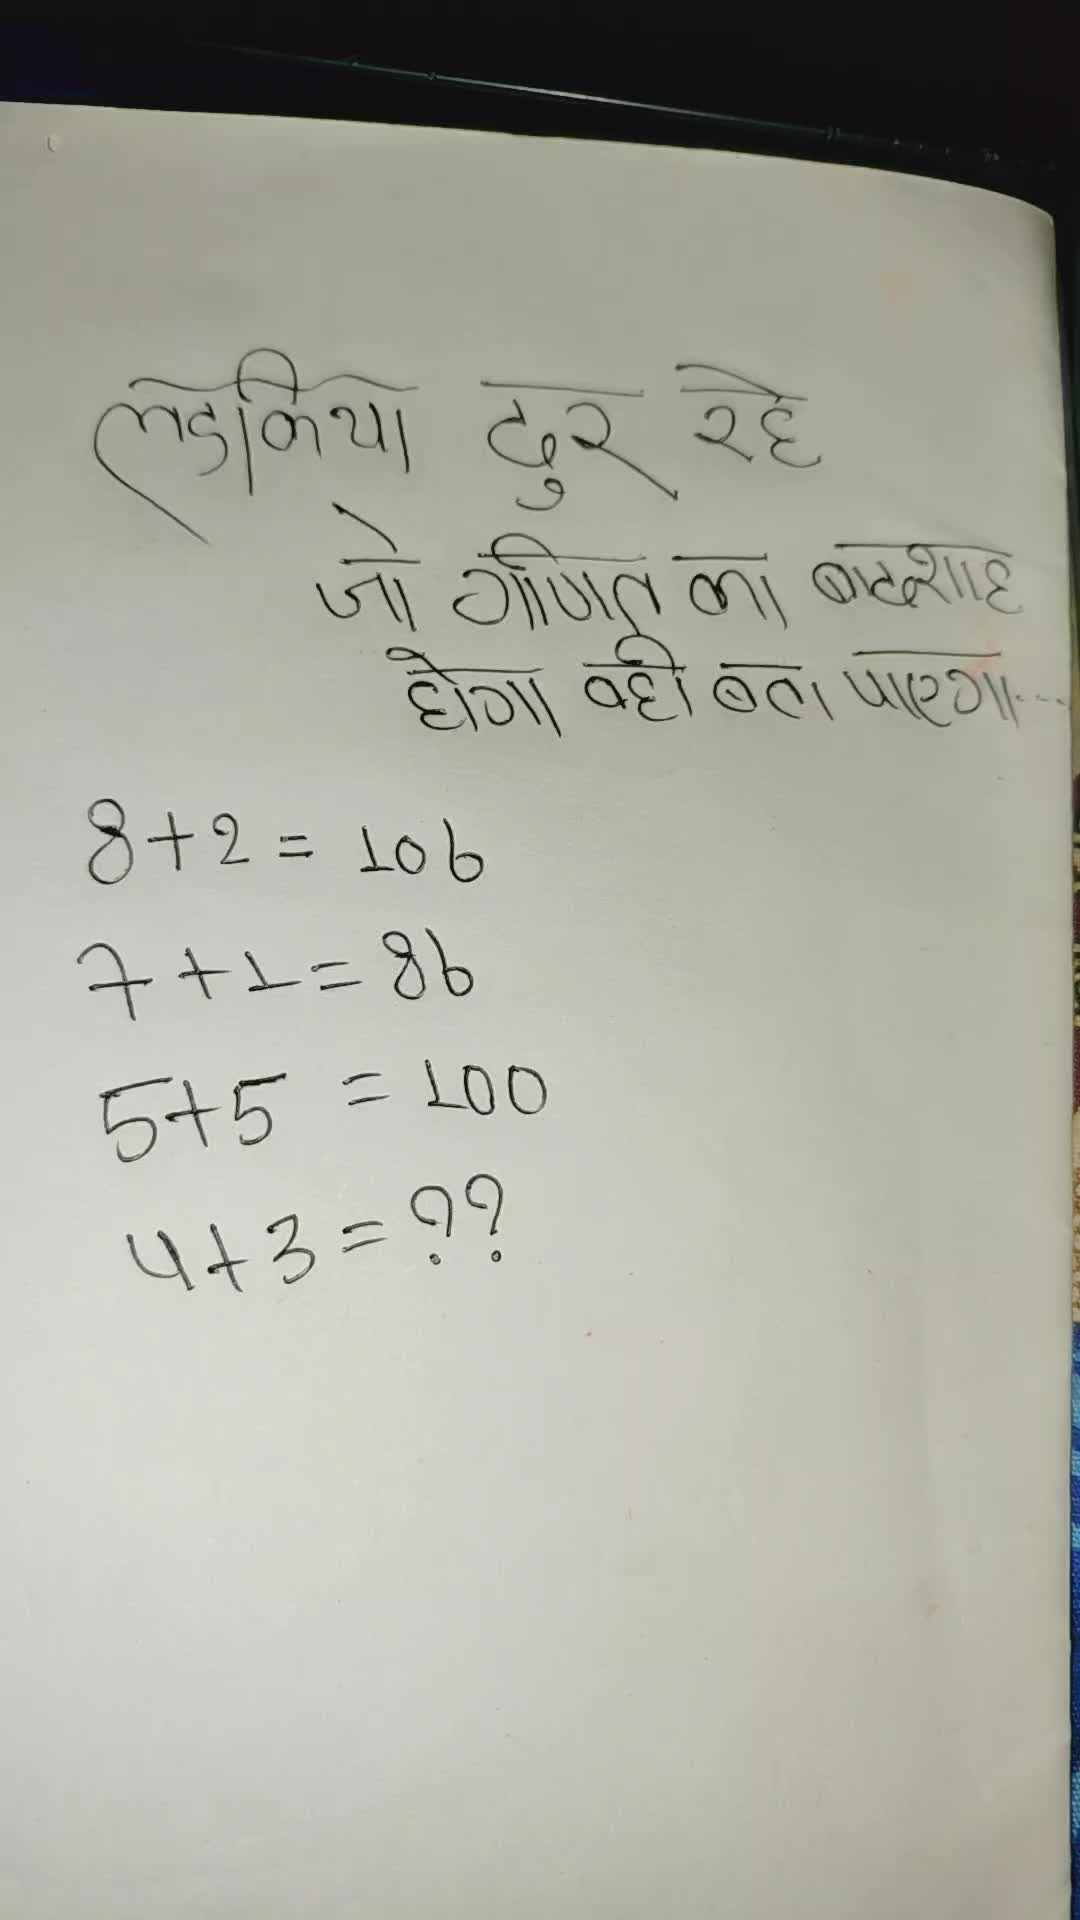 लडकिया दुर रहे
जो गणित का बादशाह
होगा वही बता पाएगा....
8+2=106
7+1=86
5+5=100
4+3=??